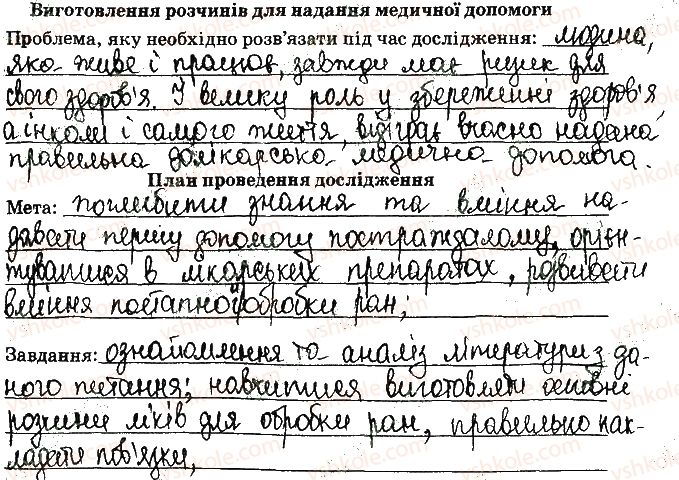 Виготовлення розчинів для надання медичної допомоги
Проблема, яку необхідно розв'язати під час дослідження: людина,
яка живе і працює, завжди має ризик для
свого здоров'я. І велику роль у збереженні здоров'я,
а інколи і самого життя, відіграє вчасно надана
правильна долікарська медична допомога.
План проведення дослідження
Мета: поглибити знання та вміння на-
давати першу допомогу постраждалому, орієн-
туватися в лікарських препаратах, розвивати
вміння поетапної обробки ран;
Завдання: ознайомлення та аналіз літератури з да-
ного питання; навчитися виготовляти основні
розчини ліків для обробки ран, правильно нак-
ладати пов'язки,